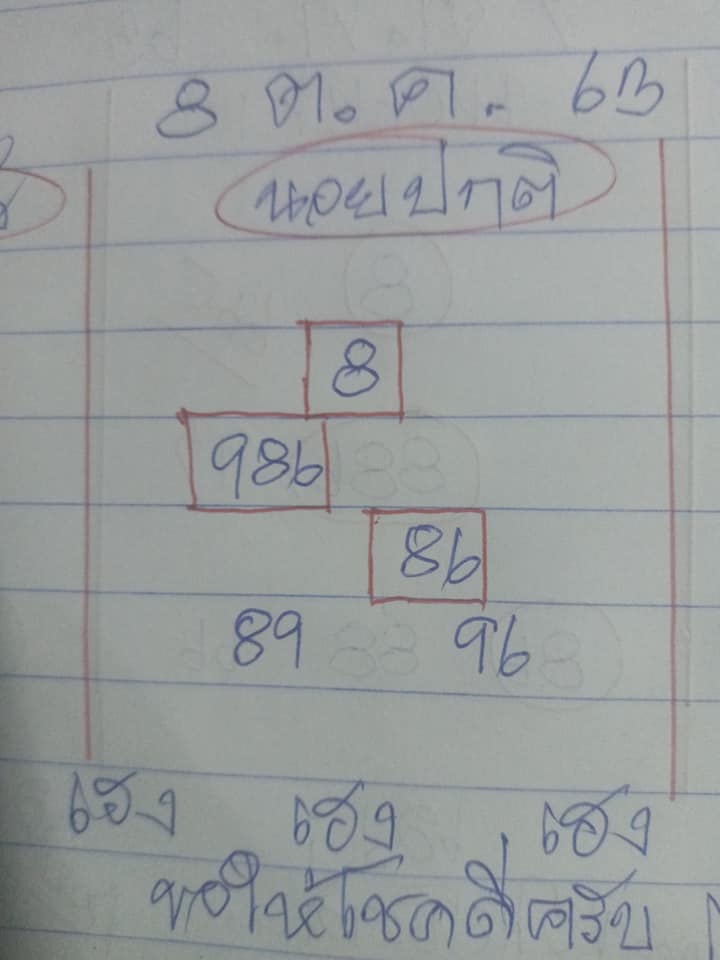 8 ต.ค. 63
นอยปกติ
8
986
86
89 96
เฮง เฮง เฮง
ขอให้โชคดีครับ